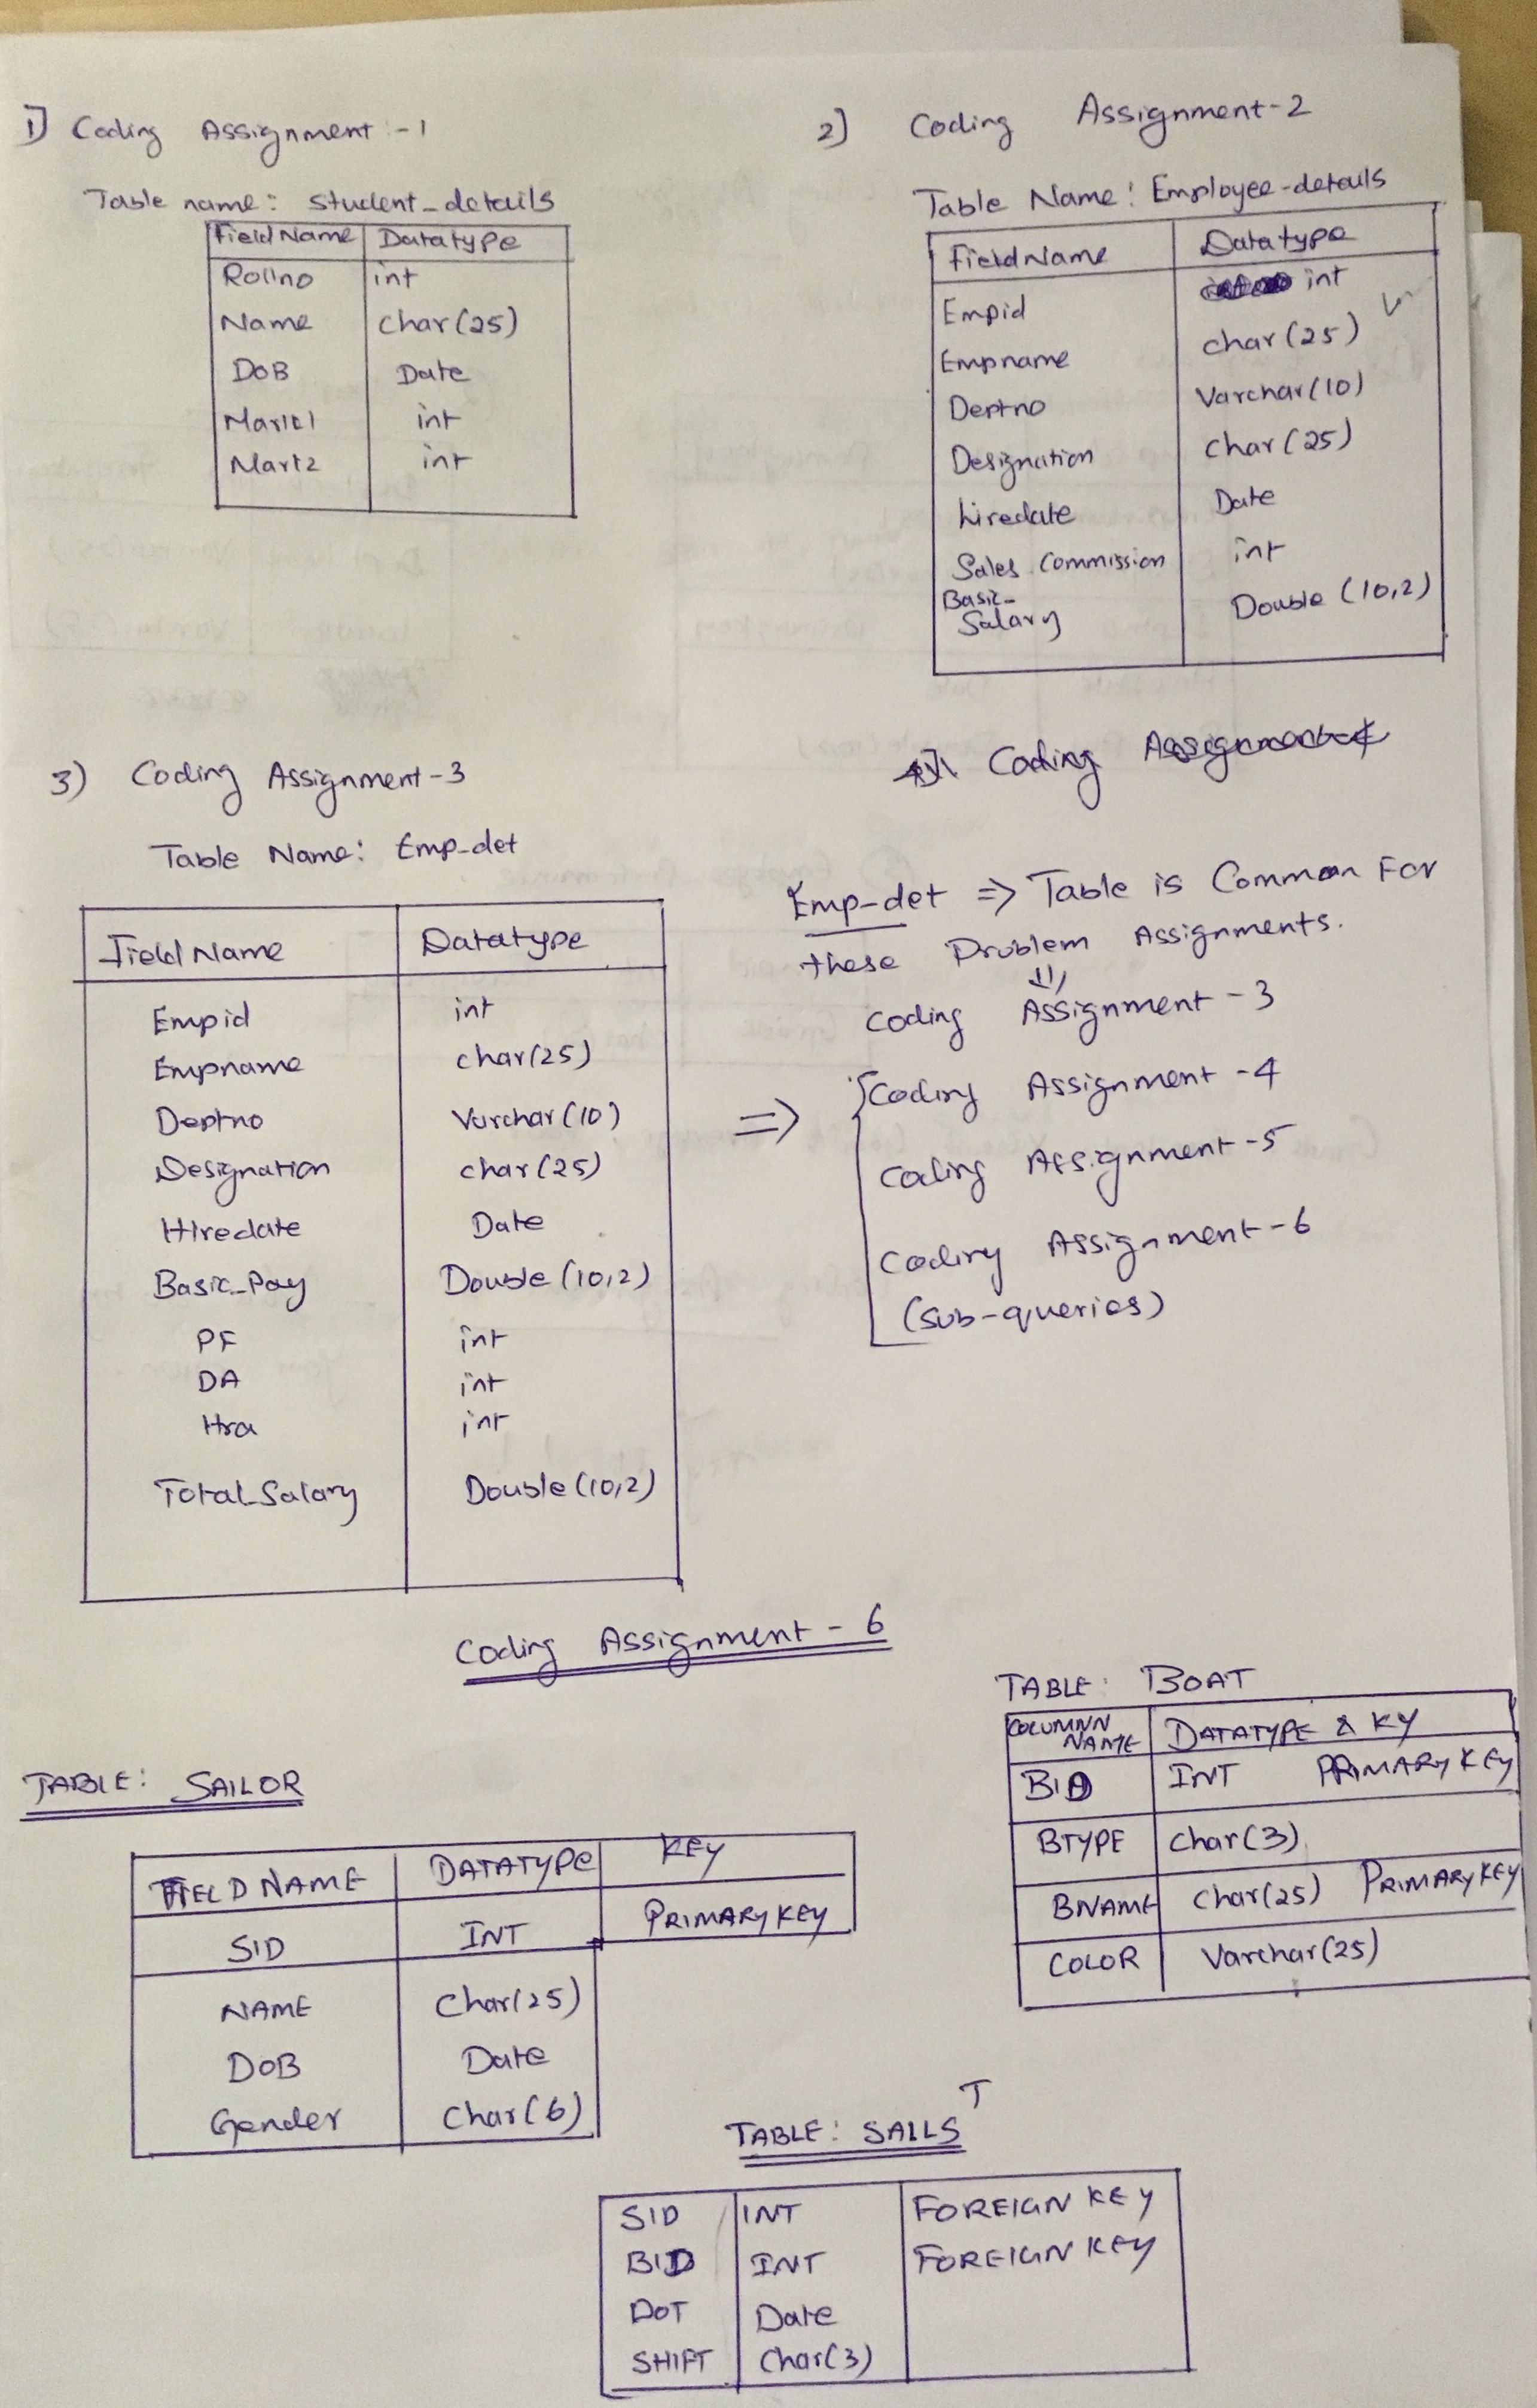 1) Coding Assignment :- 1
Table name: student_details
Field Name Datatype
Rollno int
Name char(25)
DOB Date
Mark1 int
Mark2 int
2) Coding Assignment-2
Table Name: Employee-details
Field Name Datatype
Empid int
Empname char(25)
Deptno Varchar(10)
Designation char(25)
hiredate Date
Sales commission int
Basic-Salary Double (10,2)
3) Coding Assignment-3
Table Name: Emp-det
Field Name Datatype
Empid int
Empname char(25)
Deptno Varchar(10)
Designation char(25)
Hiredate Date
Basic_Pay Double (10,2)
PF int
DA int
Hra int
Total Salary Double (10,2)
Coding Assignment
Emp-det => Table is Common For
these Problem Assignments.
Coding Assignment-3
=> Coding Assignment-4
Coding Assignment-5
Coding Assignment-6
(sub-queries)
Coding Assignment-6
TABLE: SAILOR
FIELD NAME DATATYPE KEY
SID INT PRIMARY KEY
NAME Char(25)
DOB Date
Gender Char(6)
TABLE: BOAT
COLUMN NAME DATATYPE & KY
BID INT PRIMARY KEY
BTYPE Char(3)
BNAME Char(25) PRIMARY KEY
COLOR Varchar(25)
T
TABLE: SAILS
SID INT FOREIGN KEY
BID INT FOREIGN KEY
DOT Date
SHIFT Char(3)